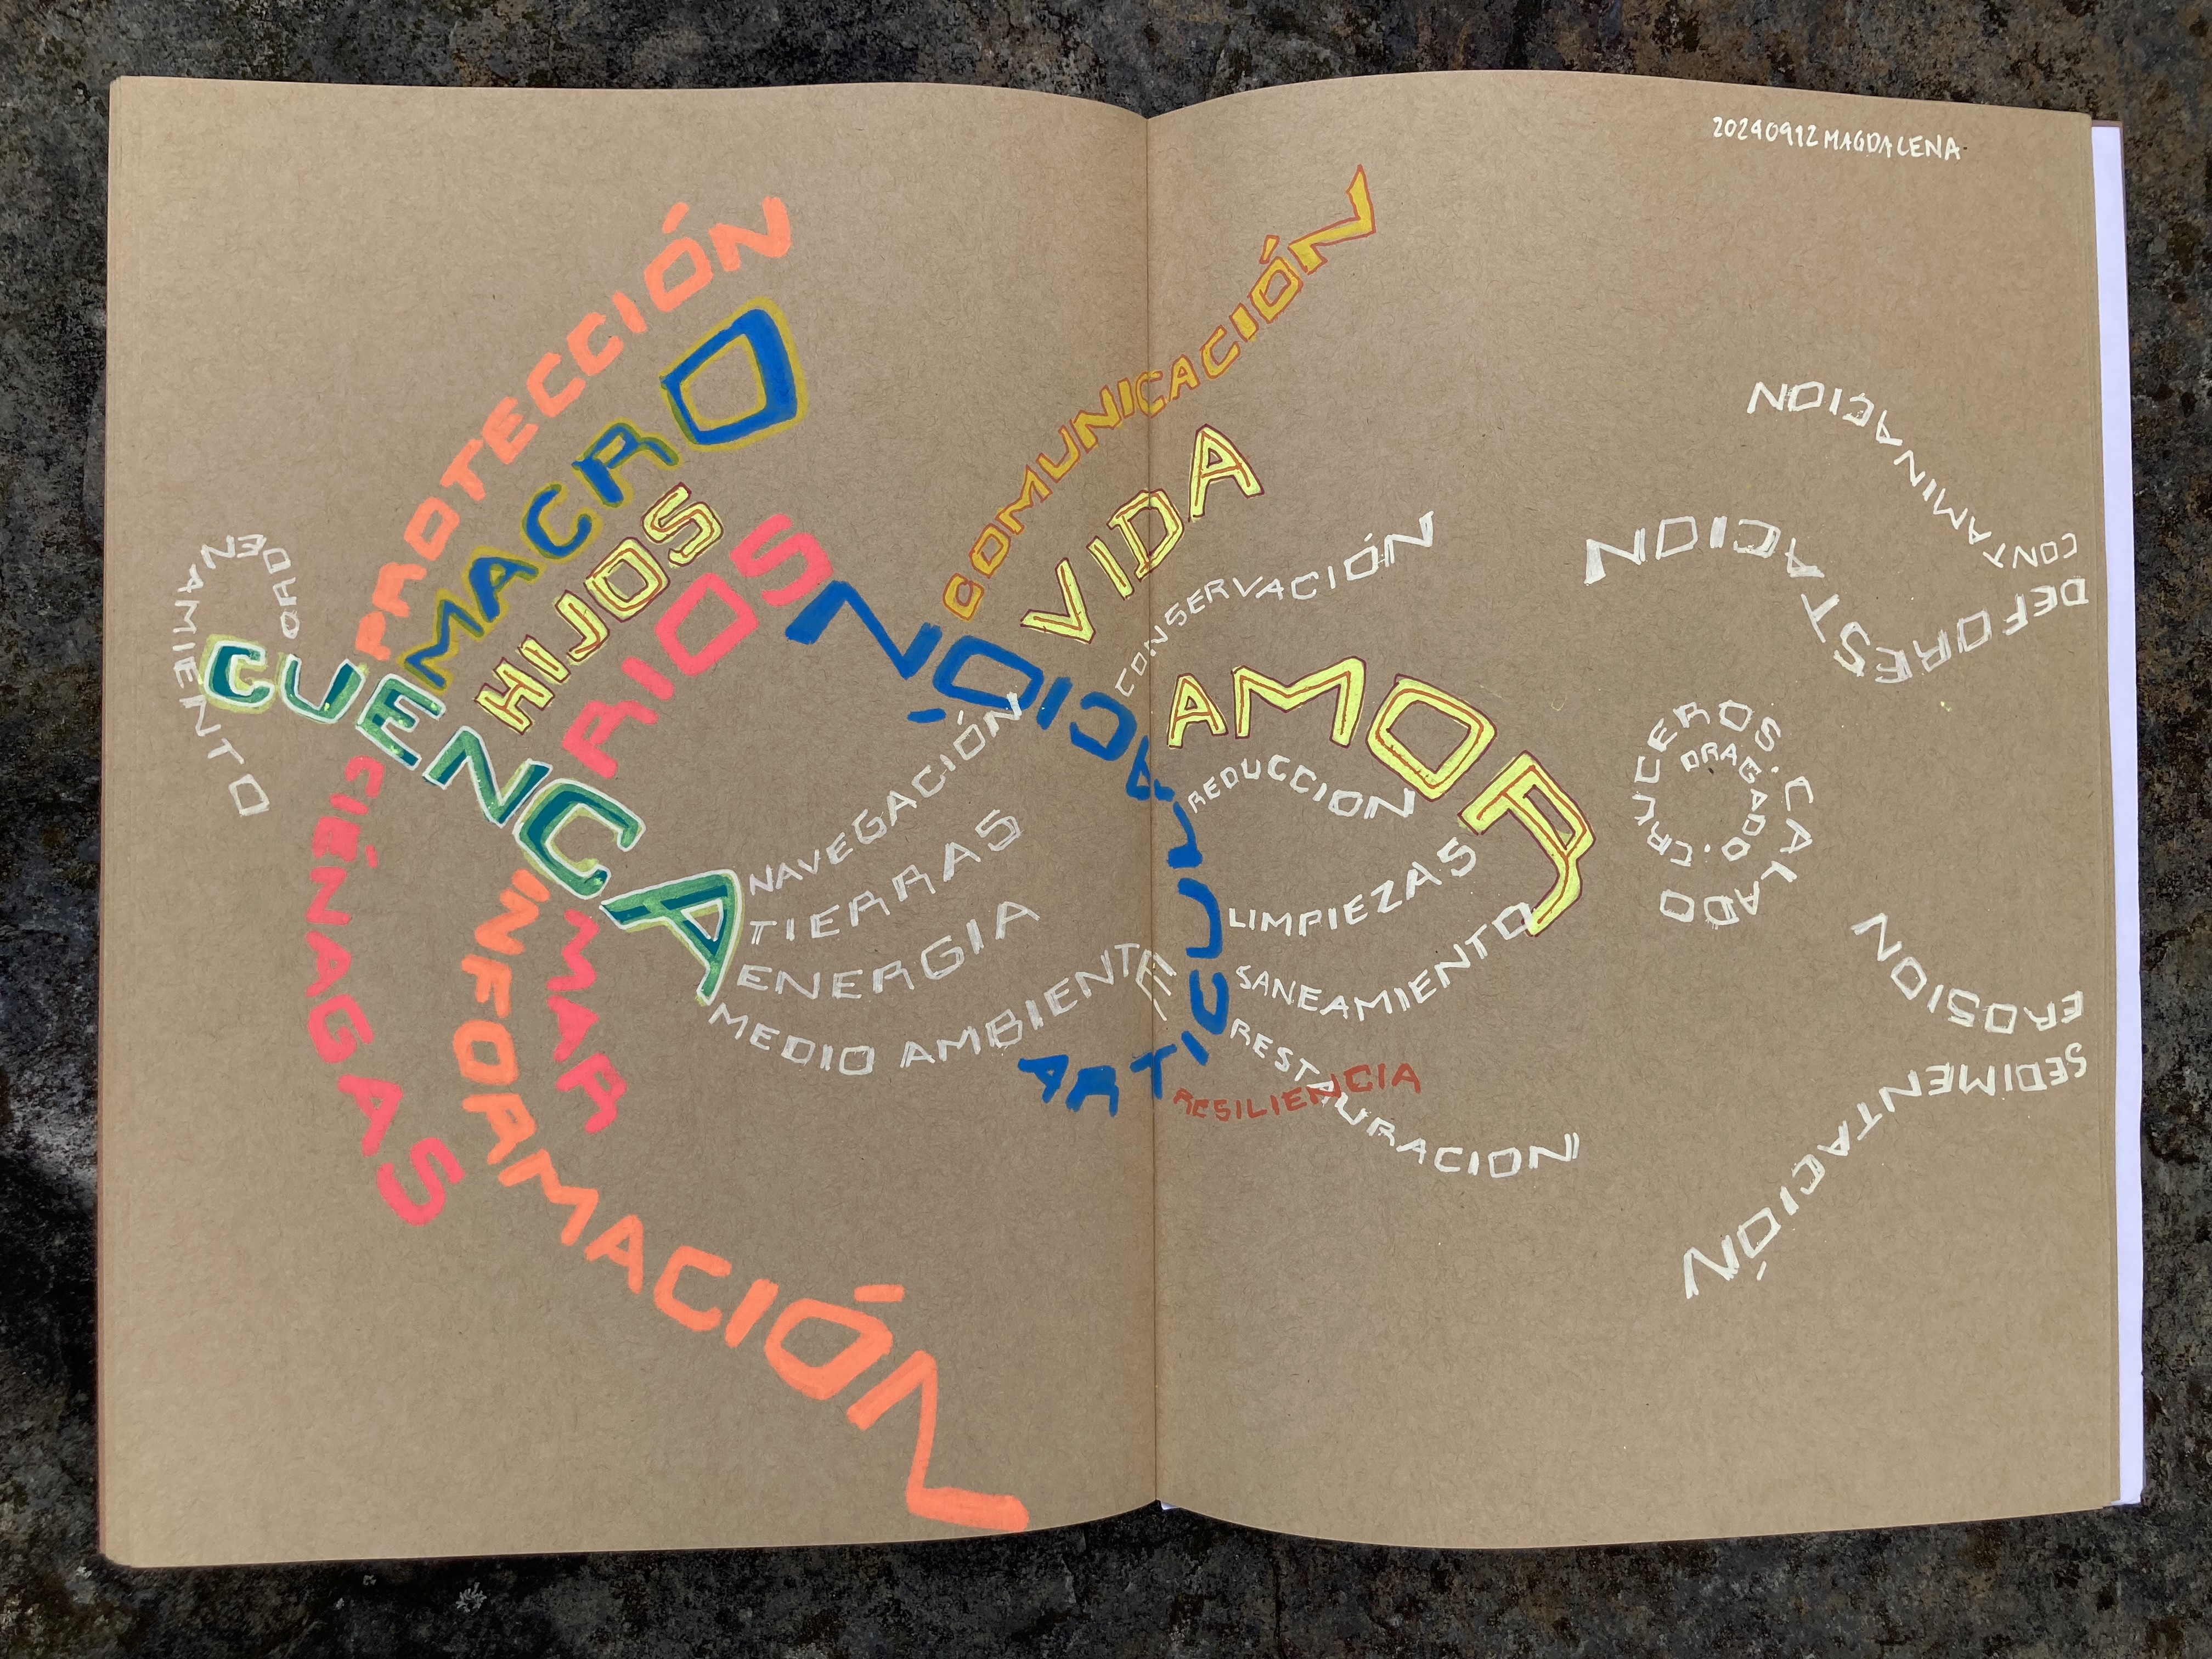 20240912 MAGDALENA
PROTECCIÓN
MACRO
HIJOS
RIOS
ORDENAMIENTO
CUENCA
CIÉNAGAS
INFORMACIÓN
MAR
NAVEGACIÓN
TIERRAS
ENERGIA
MEDIO AMBIENTE
ARTICULACIÓN
COMUNICACIÓN
VIDA
CONSERVACIÓN
AMOR
REDUCCION
LIMPIEZAS
SANEAMIENTO
RESTAURACION
RESILIENCIA
CONTAMINACION
DEFORESTACION
DRAGADO. CRUCEROS. CALADO
EROSION
SEDIMENTACIÓN